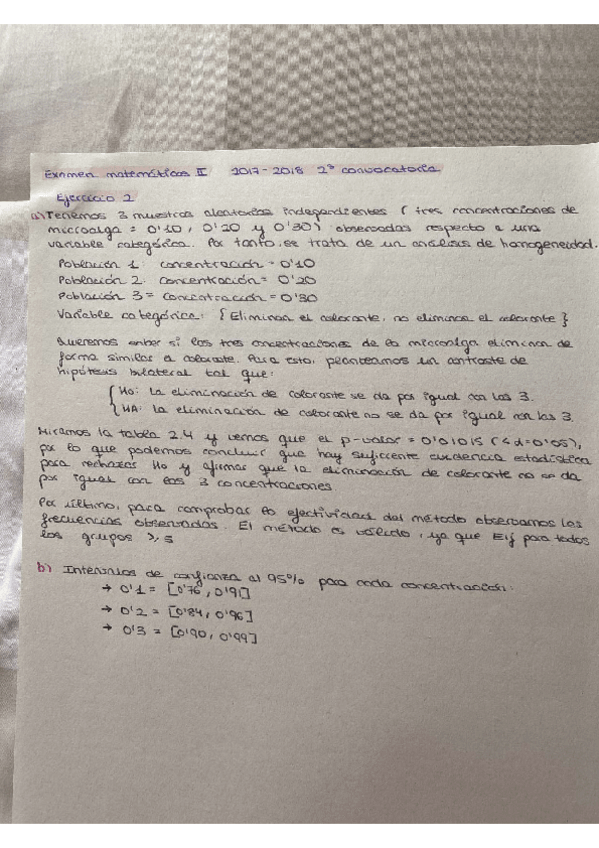 Examen matemáticas II 2017-2018 2ª convocatoria
Ejercicio 2
a) Tenemos 3 muestras aleatorias independientes (tres concentraciones de
microalga = 0'10, 0'20 y 0'30) observadas respecto a una
variable categórica. Por tanto, se trata de un análisis de homogeneidad.
Población 1: concentración = 0'10
Población 2: concentración = 0'20
Población 3 = concentración = 0'30
Variable categórica: {Eliminan el colorante, no eliminan el colorante}
Queremos saber si las tres concentraciones de la microalga eliminan de
forma similar el colorante. Para esto, planteamos un contraste de
hipótesis bilateral tal que:
{ H0: la eliminación de colorante se da por igual con las 3.
HA: la eliminación de colorante no se da por igual con las 3.
Miramos la tabla 2.4 y vemos que el p-valor = 0'01015 (< α = 0'05),
por lo que podemos concluir que hay suficiente evidencia estadística
para rechazar H0 y afirmar que la eliminación de colorante no se da
por igual con las 3 concentraciones
Por último, para comprobar la efectividad del método observamos las
frecuencias observadas. El método es válido, ya que Eij para todos
los grupos ≥ 5
b) Intervalos de confianza al 95% para cada concentración:
→ 0'1 = [0'76, 0'91]
→ 0'2 = [0'84, 0'96]
→ 0'3 = [0'90, 0'99]